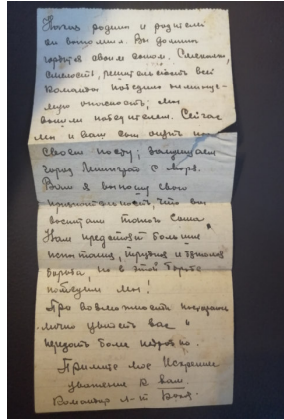 Наказ родины и родителей
он выполнил. Вы должны
гордится своим сыном. Смекалка,
смелость, решительность всей
команды победила
опасность; мы
вышли победителем. Сейчас
мы и ваш сын опять на
своем посту; защищаем
город Ленинград с моря.
Вам я выношу свою
что вы
воспитали такого сына.
Нам предстоит большие
испытания, трудная и
борьба, но в этой борьбе
победим мы!
При возможности постараюсь
лично увидеть вас и
передать более подробно.
Примите мое Искреннее
уважение к вам.
Командир л-т